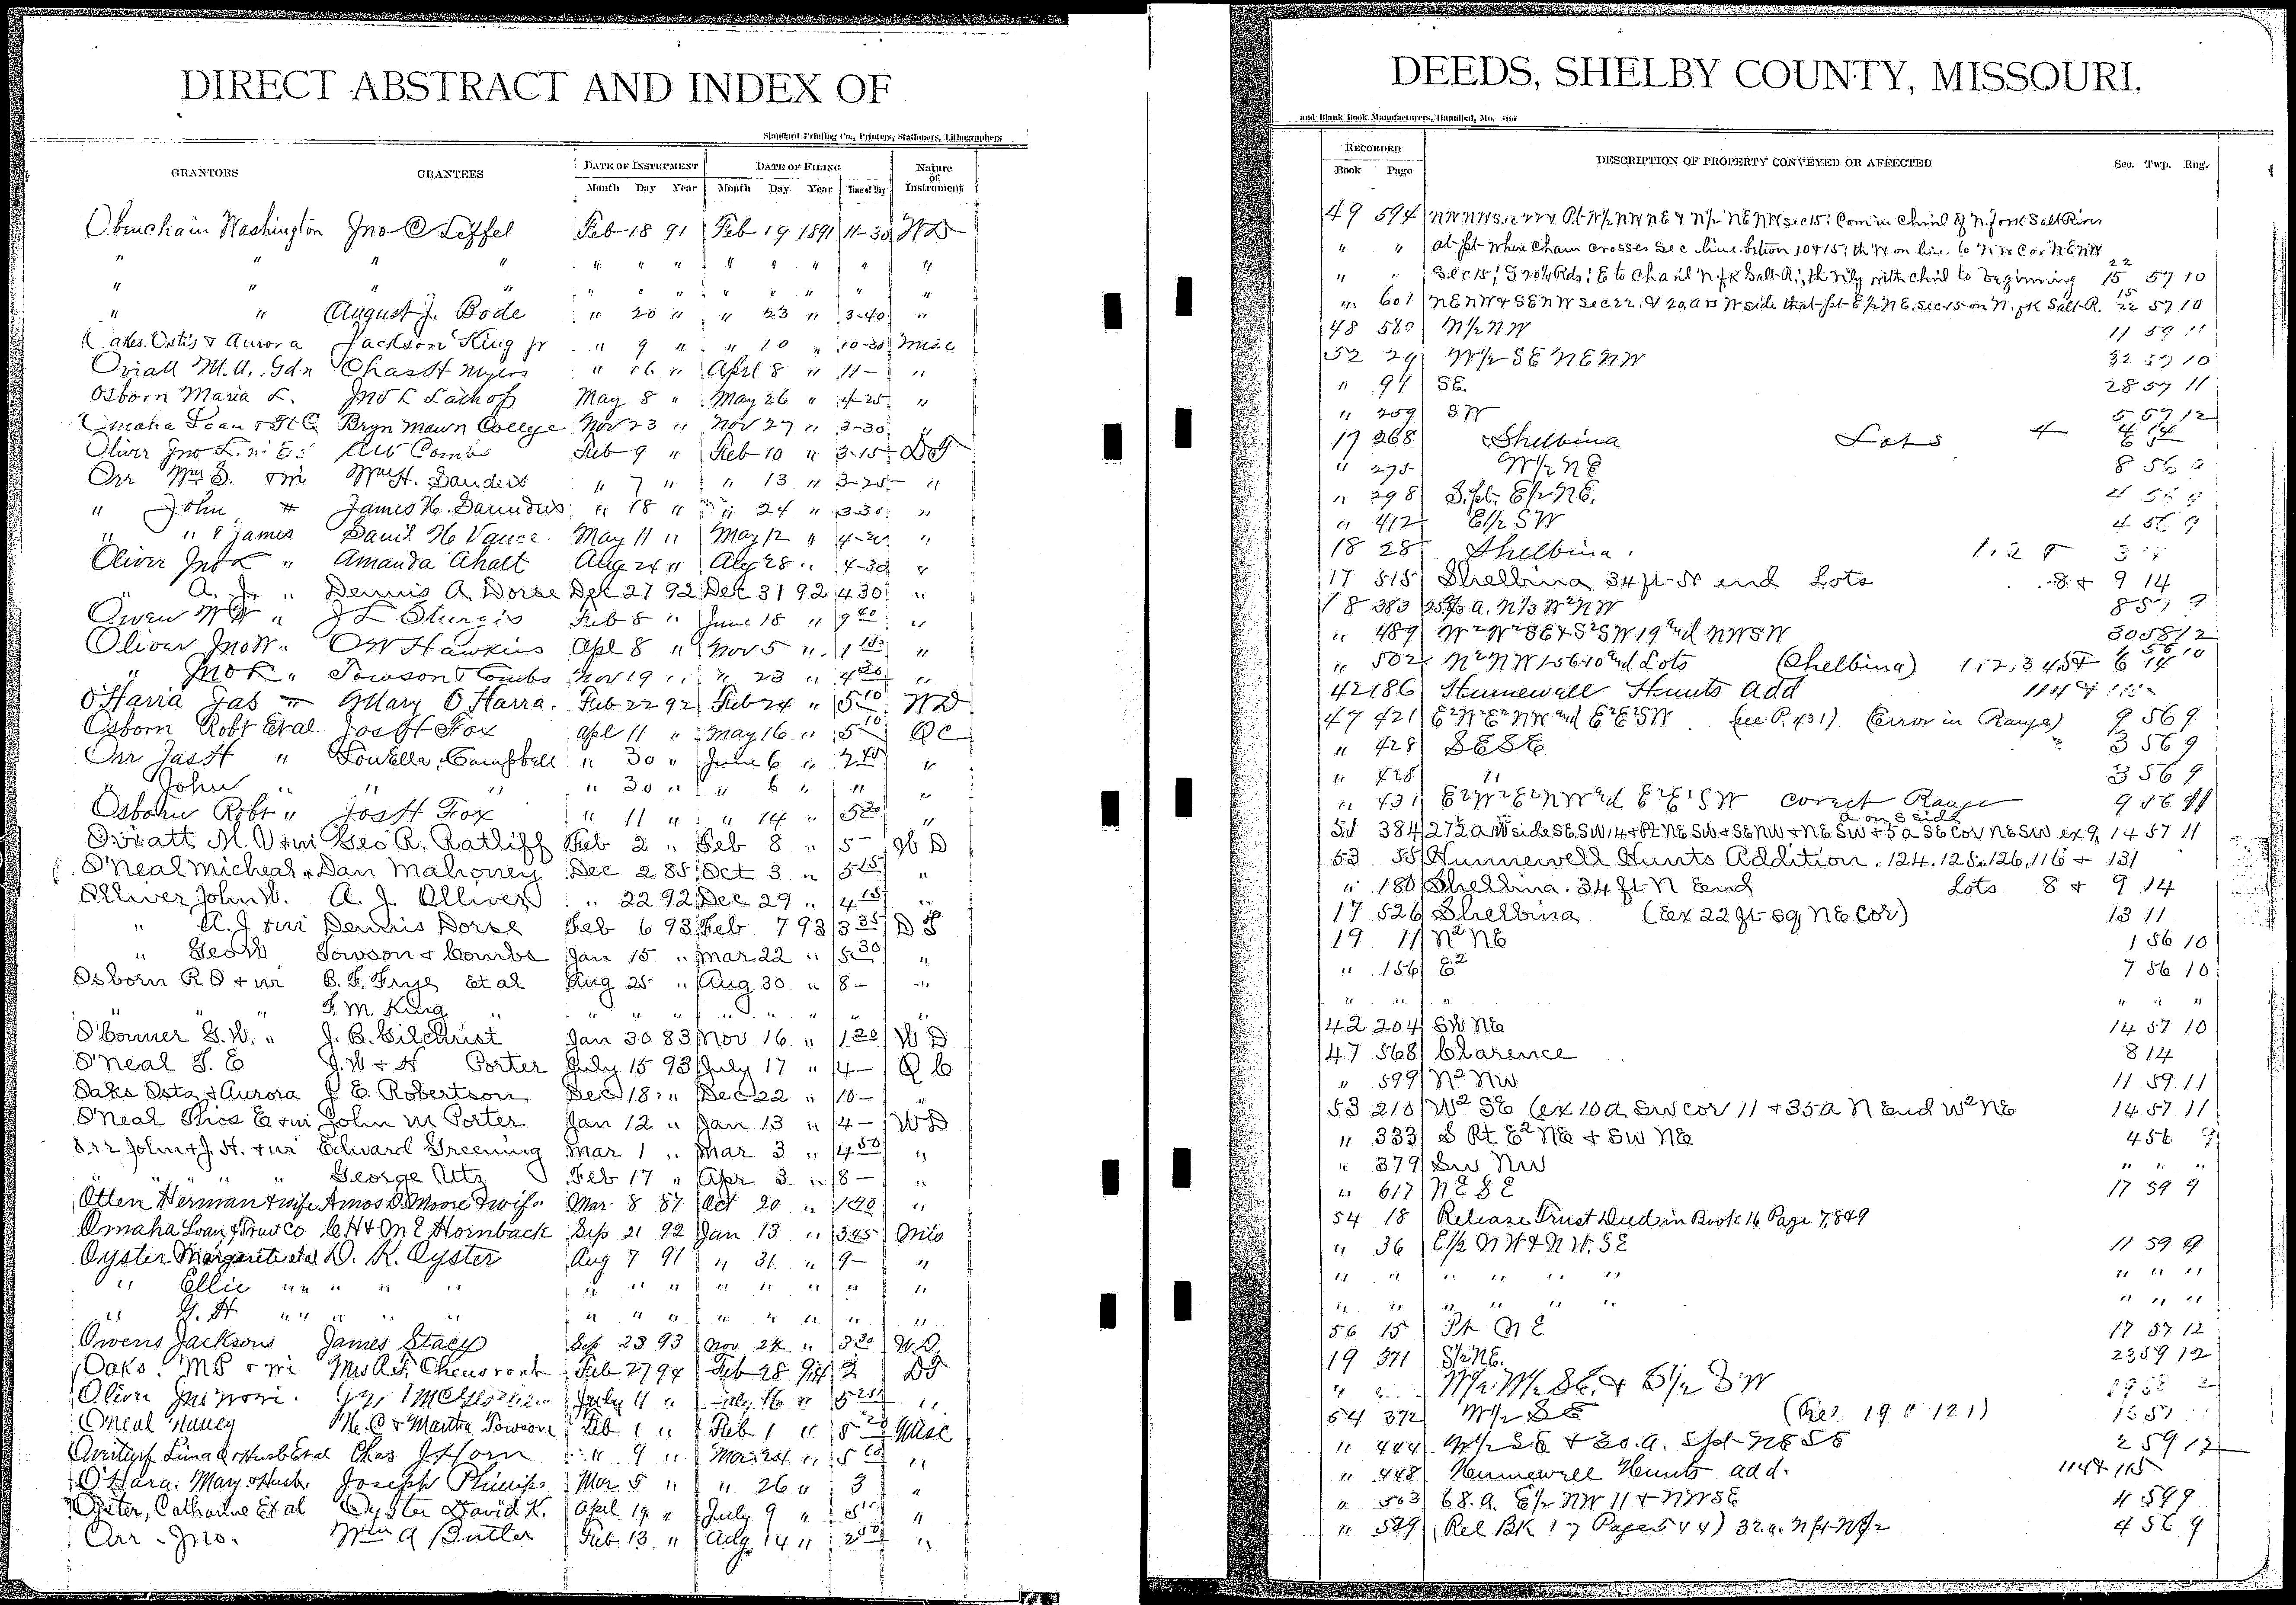 DIRECT ABSTRACT AND INDEX OF
Standard Printing Co., Printers, Stationers, Lithographers
GRANTORS GRANTEES DATE OF INSTRUMENT DATE OF FILING Nature of Instrument
Month Day Year Month Day Year Time of Day
Obenchain Washington Jno C Leffel Feb 18 91 Feb 19 1891 11-30 WD
" " " " " " " " " " " "
" " " " " " " " " " "
" " August J. Bode " 20 " " 23 " 3-40 "
Oakes Ostis & Aurora Jackson King jr " 9 " " 10 " 10-30 Misc
Oviatt M.U. Gdn Chas H Myers " 16 " Aprl 8 " 11- "
Osborn Maria L. Jno L Lathop May 8 " May 26 " 4-25 "
Omaha Loan & Tt Co Bryn Mawn College Nov 23 " Nov 27 " 3-30 "
Oliver Jno L. Combs Feb 9 " Feb 10 " 3-15 DT
Orr Wm S. & wi Wm H. Sanders " 7 " " 13 " 3-25 "
" John James H. Saunders " 18 " " 24 " 3-30 "
" " & James Danil H. Vance May 11 " May 12 " 4-20 "
Oliver Jno L " Amanda Ahalt Aug 24 " Aug 28 " 4-30 "
" A. J. " Dennis A. Dorse Dec 27 92 Dec 31 92 4 30 "
Owen W W " J L Sturgis Feb 8 " June 18 " 9 40 "
Oliver Jno W. " O W Hawkins Apl 8 " Nov 5 " 1 15 "
" Jno R " Towson & Combs Nov 19 " " 23 " 4 20 "
O'Harra Jas Mary O'Harra. Feb 22 92 Feb 24 " 5 10 WD
Osborn Robt Et al Jos H Fox Apl 11 " May 16 " 5 10 QC
Orr Jas H " Lou Ella Campbell " 30 " June 6 " 2 40 "
" John " " " " 30 " " 6 " " "
Osborn Robt " Jos H Fox " 11 " " 14 " 5 20 "
Oviatt M. V & wi Geo R. Ratliff Feb 2 " Feb 8 " 5- WD
O'Neal Micheal " Dan Mahoney Dec 2 85 Oct 3 " 5 15 "
Olliver John W. A. J. Olliver " 22 92 Dec 29 " 4 15 "
" A. J & wi Dennis Dorse Feb 6 93 Feb 7 93 3 35 DT
" Geo W Towson & Combs Jan 15 " Mar 22 " 5 30 "
Osborn R D & wi B. F. Frye Et al Aug 25 " Aug 30 " 8- "
" " " F. M. King " " " " " " " "
O'Conner G. W. " J. B. Gilchrist Jan 30 83 Nov 16 " 1 20 WD
O'Neal T. E J. W & H Porter July 15 93 July 17 " 4- QC
Oaks Osta & Aurora J E. Robertson Dec 18 " Dec 22 " 10- "
O'Neal Thos E & wi John M Porter Jan 12 " Jan 13 " 4- WD
Orr John & J. H. & wi Edward Greening Mar 1 " Mar 3 " 4 50 "
" " " George Utz Feb 17 " Apr 3 " 8- "
Otten Herman & wife Amos D. Moore & wife Mar 8 87 Oct 20 " 1 40 "
Omaha Loan & Trust Co C H & M E Hornback Sep 21 92 Jan 13 " 3 45 Mis
Oyster Margarete et al D. K. Oyster Aug 7 91 " 31 " 9- "
" Ellie " " " " " " " " " " " "
" G. H " " " " " " " " " " " "
Owens Jackson James Stacy Sep 23 93 Nov 24 " 3 30 W.D.
Oaks. M & wi Mrs R.F. Chenoront Feb 27 94 Feb 28 94 2 DT
Oliver July 11 " July 16 " 5 25 "
Oneal Nancy M. C & Martha Towson Feb 1 " Feb 1 " 5 20 Misc
Overturf Lima & Husb Et al Chas J Horn " 9 " " 5 10 "
O'Hara. Mary & Husb. Joseph Phillips Mar 5 " " 26 " 3 "
Oyster, Catharine Et al Oyster David K. April 19 " July 9 " 5 "
Orr - Jno. Wm A Butler Feb 13 " Aug 14 " 2 50 "
DEEDS, SHELBY COUNTY, MISSOURI.
and Blank Book Manufacturers, Hannibal, Mo.
RECORDED DESCRIPTION OF PROPERTY CONVEYED OR AFFECTED Sec. Twp. Rng.
Book Page
49 594 Pt W/2 NW NE & N/2 NE NW sec 15: Com in Chnl of N. fork Salt River
" " at pt where Chan crosses sec line betwn 10 & 15; th W on line to N W Cor NE NW
" " Sec 15; S 20 Rds; E to Chanl N fk Salt R; th Nly with chnl to beginning 22 15 57 10
" 601 NE NW & SE NW sec 22. & 20 ars W side that pt E/2 NE. sec 15 on N. fk Salt R. 15 22 57 10
48 580 N/2 NW 11 59 11
52 29 W/2 SE NE NW 32 57 10
" 91 SE. 28 57 11
" 259 SW 5 57 12
17 268 Shelbina Lots 4
" 275 W/2 NE 8 56 9
" 298 S. pt. E/2 NE. 4 56 9
" 412 E/2 SW 4 56 9
18 28 Shelbina. 1. 2 & 3
17 515 Shelbina 34 ft N end Lots 8 & 9 14
18 383 N/3 W2 NW 8 57 9
" 489 W2 W2 SE & S2 SW 19 and NW SW 30 58 12
" 502 N2 NW 1-56-10 and Lots (Shelbina) 1. 2. 3 4 5 & 6 14
42 186 Hunnewell Hunts Add 114 &
47 421 E2 W2 E2 NW and E2 E2 SW (see P. 431) (Error in Range) 9 56 9
" 428 SE SE 3 56 9
" 428 " 3 56 9
" 431 E2 W2 E2 NW and E2 E2 SW corect Range 9 56 11
51 384 W side SE SW 14 & Pt NE SW & SE NW & NE SW & 5 a SE Cor NE SW ex 9 a on S side 14 57 11
53 55 Hunnewell Hunts Addition. 124. 125. 126. 116 & 131
" 180 Shelbina. 34 ft N End Lots 8 & 9 14
17 526 Shelbina (Ex 22 ft sq NE Cor) 13 11
19 11 N2 NE 1 56 10
" 156 E2 7 56 10
" " " " " "
42 204 SW NE 14 57 10
47 568 Clarence 8 14
" 599 N2 NW 11 59 11
53 210 W2 SE (ex 10 a SW cor 11 & 35 a N End W2 NE 14 57 11
" 333 S Pt E2 NE & SW NE 4 56 9
" 379 SW NW " " "
" 617 NE SE 17 59 9
54 18 Release Trust Deed in Book 16 Page 7,849
" 36 E/2 NW & NW. SE 11 59 9
" " " " " " " " "
" " " " " " " " "
56 15 Pt NE 17 57 12
19 371 S/2 NE. 23 59 12
" W/2 W/2 SE. & E/2 SW
54 372 W/2 SE (Rec 19 & 121)
" 444 W/2 SE & 20. a. S pt NE SE 2 59 12
" 448 Hunnewell Hunts add. 114 & 115
" 563 68. a. E/2 NW 11 & NW SE 11 59 9
" 589 (Rel BK 17 Page 544) 32. a. N pt 4 56 9